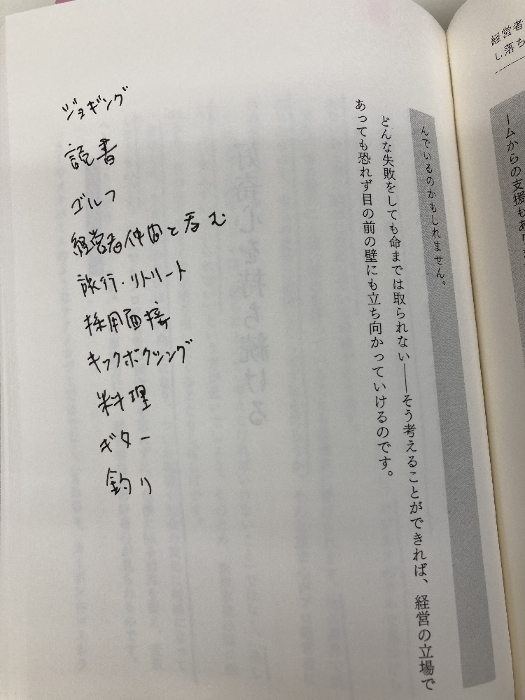 経営者
し落ち
ームからの支援もあり
んでいるのかもしれません。
どんな失敗をしても命までは取られない――そう考えることができれば、経営の立場で
あっても恐れず目の前の壁にも立ち向かっていけるのです。
ジョギング
読書
ゴルフ
経営者仲間と呑む
旅行・リトリート
採用面接
キックボクシング
料理
ギター
釣り